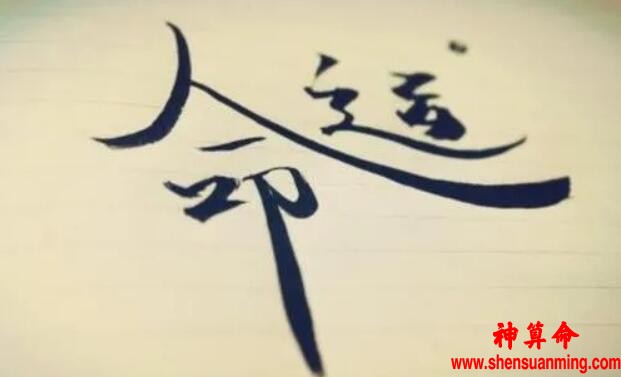 命运
神算命
www.shensuanming.com